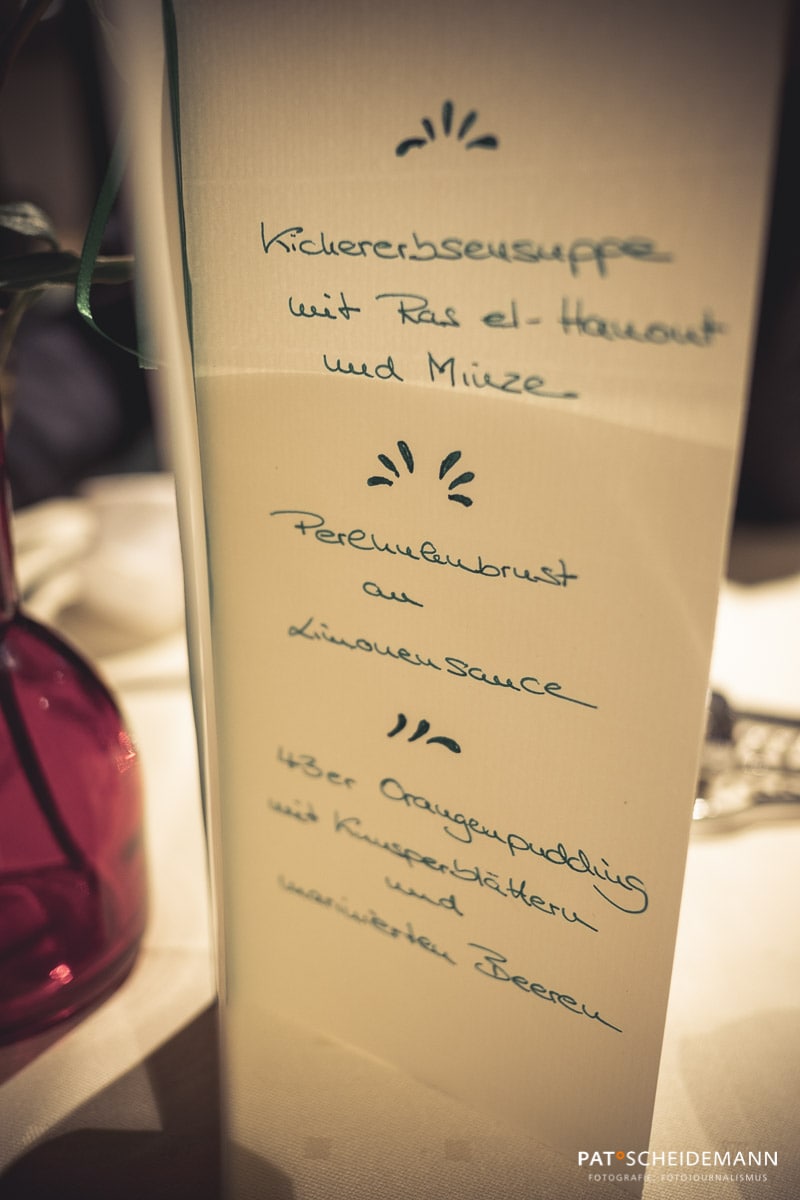 Kichererbsensuppe
mit Ras el-Hanout
und Minze
Perlhuhnbrust
an
Limonensauce
43er Orangenpudding
mit Knusperblättern
und
marinierten Beeren
PAT°SCHEIDEMANN
FOTOGRAFIE; FOTOJOURNALISMUS